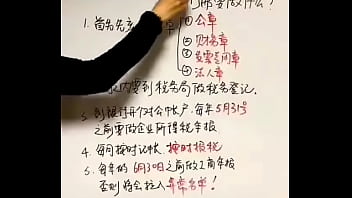 要做什么?
1. 首先
① 公章
② 财务章
③ 发票专用章
④ 法人章
内要到税务局做税务登记.
3. 到银行开个对公帐户.每年5月31号
之前要做企业所得税年报
4. 每月按时记帐.按时报税
5. 每年的6月30日之前做工商年报
否则将会拉入异常名单!